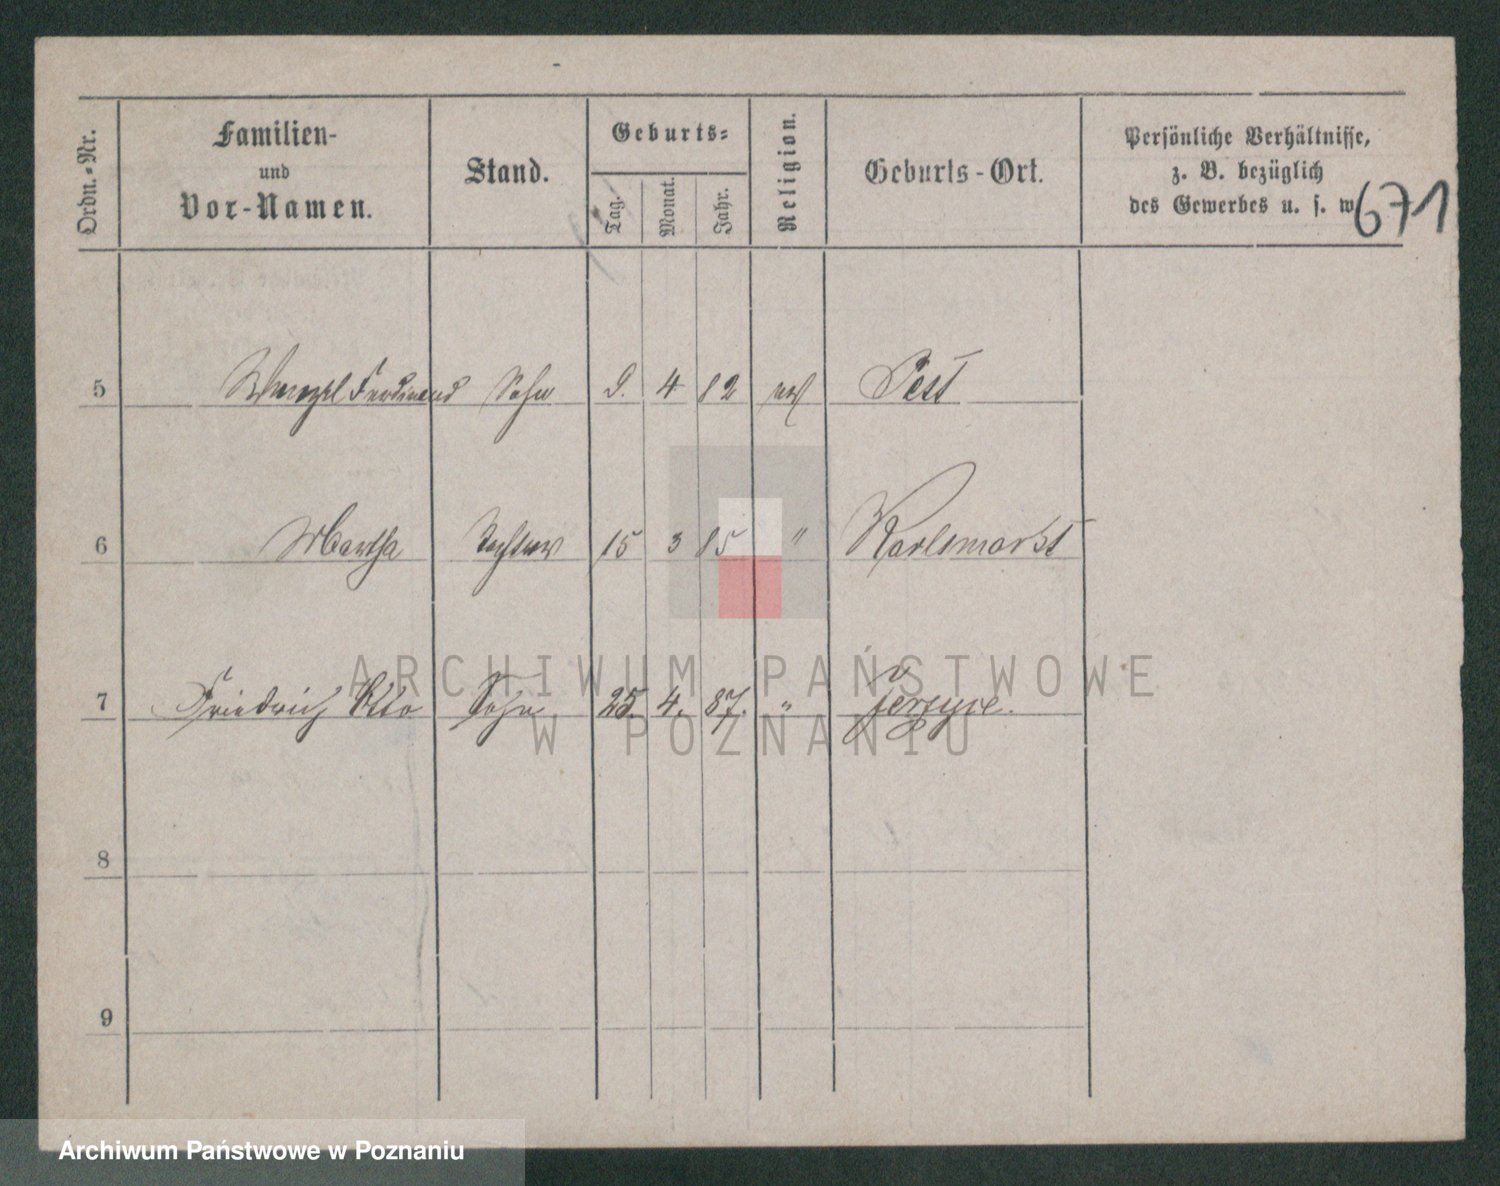 Ordn.-Nr.
Familien-
und
Vor-Namen.
Stand.
Geburts-
Tag.
Monat.
Jahr.
Religion.
Geburts-Ort.
Persönliche Verhältnisse,
z. B. bezüglich
des Gewerbes u. s. w
671
5 Wenzel Ferdinand Sohn 9. 4 82 Pest
6 Martha Tochter 15 3 85 " Karlsmarkt
7 Friedrich Otto Sohn 25. 4. 87. " Jersyce.
8
9
ARCHIWUM PAŃSTWOWE
W POZNANIU
Archiwum Państwowe w Poznaniu